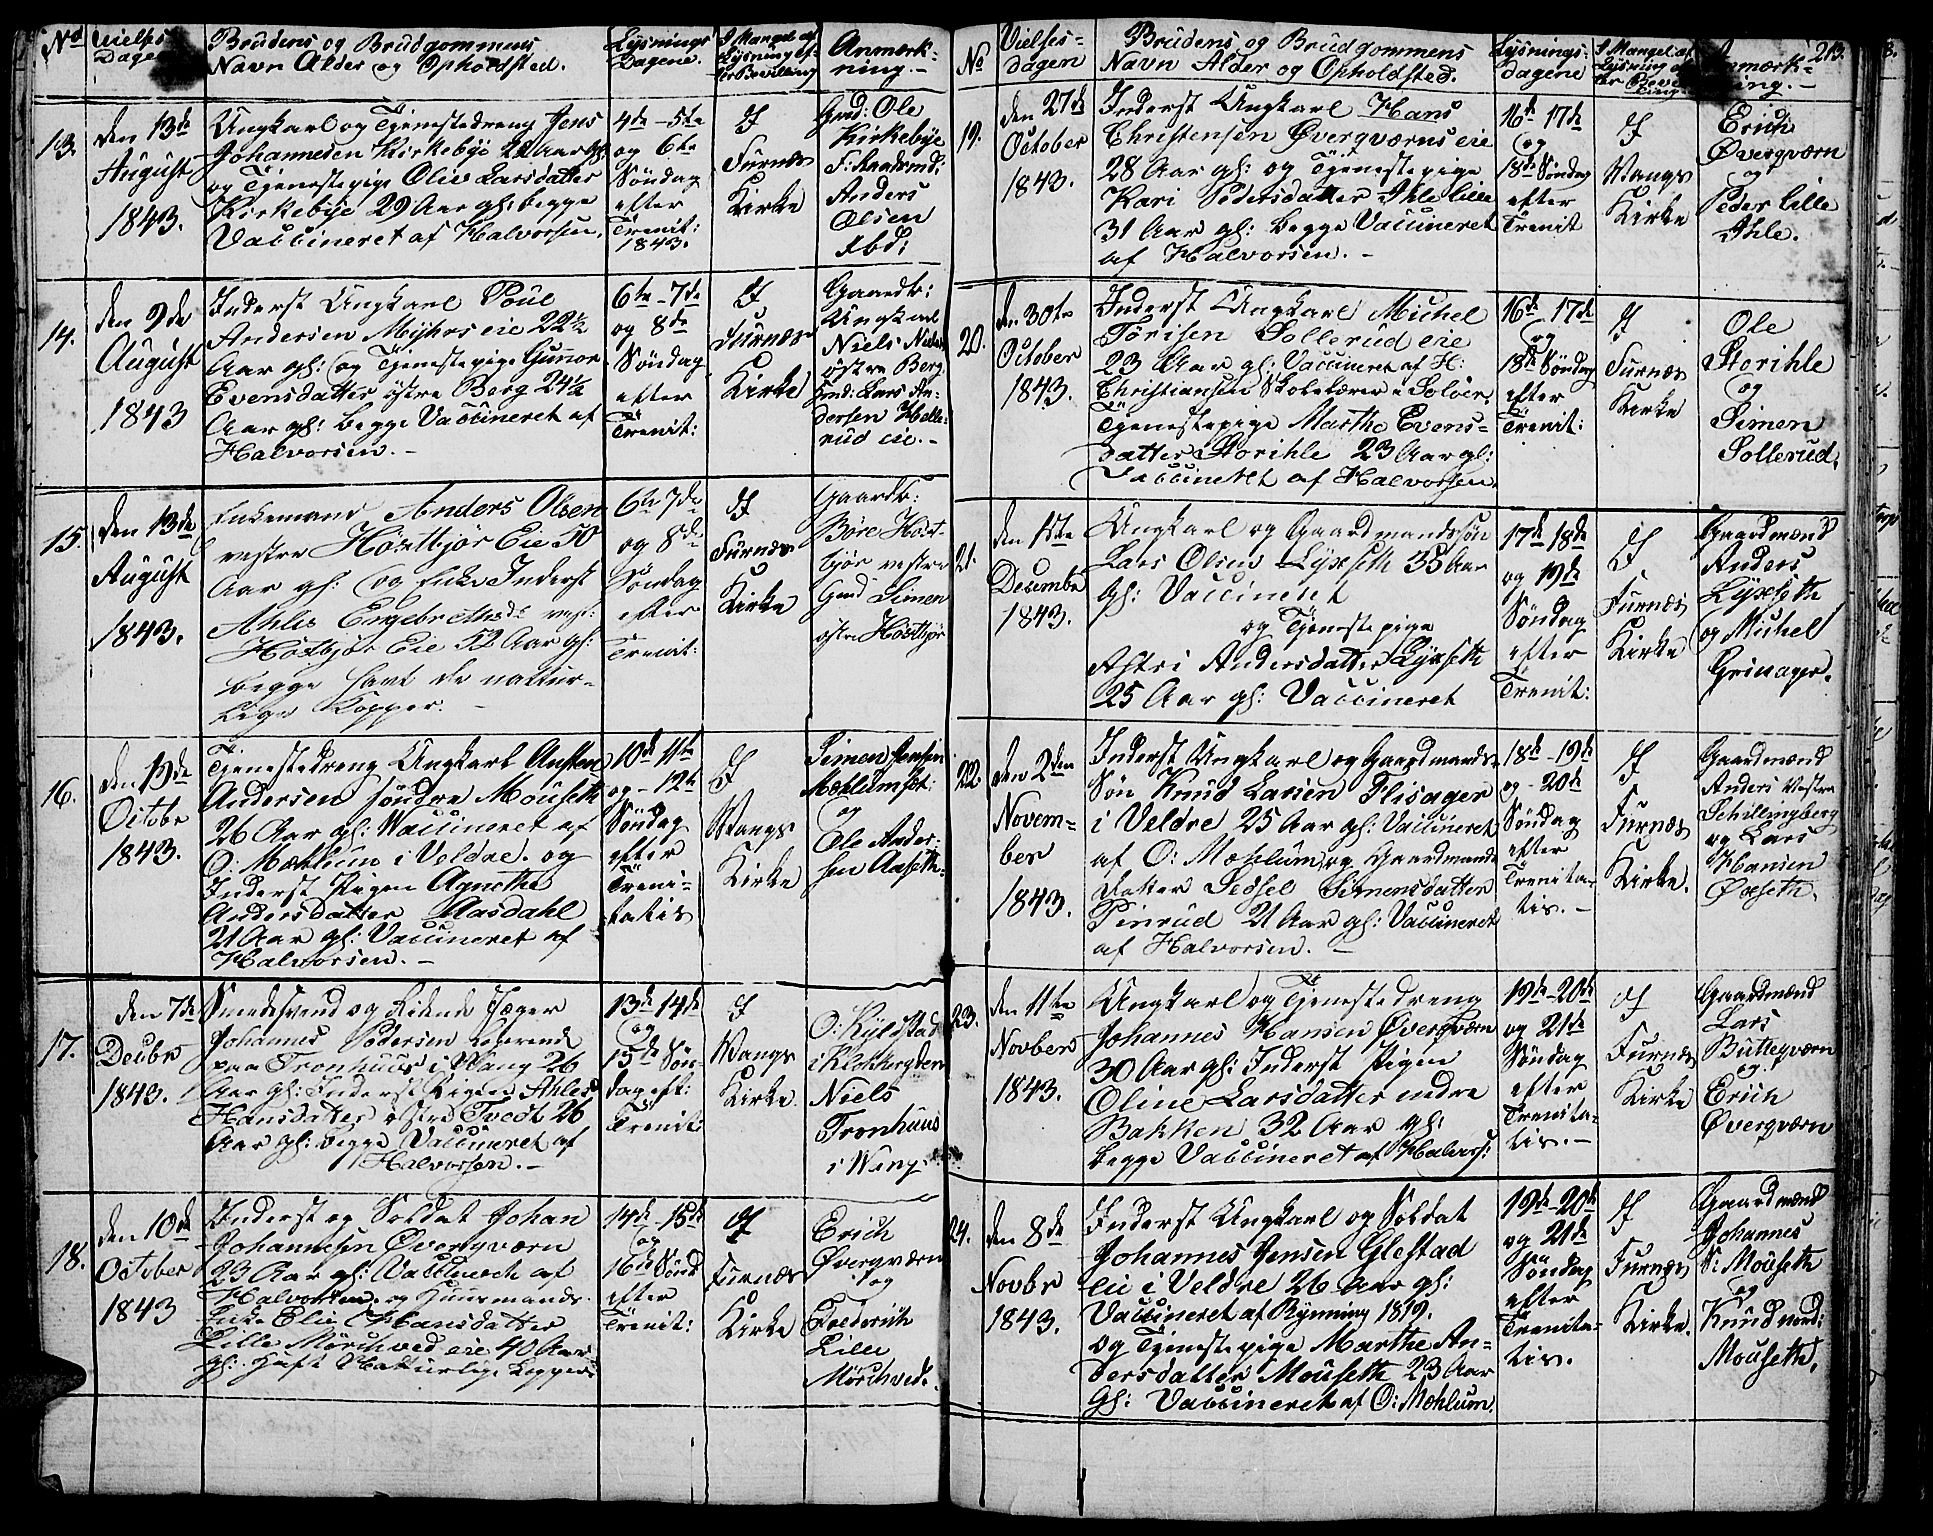 No
Vielses
Dagen
Brudens og Brudgommens
Navn Alder og Opholdsted.
Lysnings
Dagene.
I Mangel af
Lysning ef-
ter Bevilling
Anmærk-
ning.-
13.
den 13de
August
1843.
Ungkarl og Tjenestedreng Jens
Johannesen Kirkebye
og Tjenestepige Oliv Larsdatter
Kirkebye 29 Aar gl: begge
Vaccineret af Halvorsen.
4de-5te
og 6te
Søndag
efter
Trenit:
1843.
I
Furnæs
Kirke
Gmd: Ole
Kirkebye
Anders
Olsen
Ibd:
14.
den 9de
August
1843
Inderst Ungkarl Poul
Andersen Myhrs eie 22½
Aar gl: og Tjenestepige Gunor
Evensdatter østre Berg 24½
Aar gl: begge Vaccineret af
Halvorsen.-
6te-7de
og 8de
Søndag
efter
Trenit:
I
Furnæs
Kirke
Gaardbr:
Ungkarl
Niels Niels
østre Berg
Gmd: Lars An-
dersen Helle-
rud eie.-
15.
den 13de
August
1843.
Enkemand Anders Olsen
vestre Høstbjør Eie 50
Aar gl: og Enke Inderst
Ahlis Engebrethsd: vest:
Hostbjør Eie 52 Aar gl:
begge havt de natur-
lige Kopper.-
6te 7de
og 8de
Søndag
efter
Trenit:
I
Furnæs
Kirke
Gaardb:
Bore Høst-
bjør vestre
Gmd Simen
østre Høstbjør
16.
den 19de
Octobr
1843.
Tjenestedreng Ungkarl Austen
Andersen søndre Mouseth
26 Aar gl: Vaccineret af
O: Mæhlum i Veldre. og
Inderst Pigen Agnethe
Andersdatter Aasdahl
21 Aar gl: Vaccineret af
Halvorsen.-
10de 11te
og - 12te
Søndag
efter
Treni-
tatis
I
Wangs
Kirke
Simen Jensen
Mæhlum
og
Ole Ander-
sen Aaseth.
17.
den 7de
Decbr
1843.
Smedesvend og Ridende Jæger
Johannes Pedersen Logerende
paa Tronhuus i Wang 26
Aar gl: Inderst Pigen Ahlis
Hansdatter østre Tvedt 26
Aar gl: begge Vaccineret af
Halvorsen.-
13de 14de
og
15de Søn-
dag eft:
Trenit:
I
Wangs
Kirke
O: Kylstad
i Klokkergden
Niels
Tronhuus
i Wang.
18.
den 10de
October
1843
Inderst og Soldat Johan
Johannesen Øverqværn
23 Aar gl: Vaccineret af
Halvorsen. og Huusmands-
Enke Elie Hansdatter
Lille Mørchved eie 40 Aar
gl: Haft Naturlige Kopper.
14de-15de
og
16de Sønd
efter
Trenit:
I
Furnæs
Kirke
Erich
Øverqværn
og
Frederich
Lille
Mørchved.
No
Vielses-
dagen
Brudens og Brudgommens
Navn Alder og Opholdsted.
Lysnings-
dagene
I Mangel af
Lysning ef-
ter Bevil-
ling
Anmærk-
ning.-
213.
19.
den 27de
October
1843.
Inderst Ungkarl Hans
Christensen Øverqværns eie
28 Aar gl: og Tjenestepige
Kari Pedersdatter Ihle Lille
31 Aar gl: begge Vaccineret
af Halvorsen.-
16de 17de
og
18de Søndag
efter
Trenit
I
Wangs
Kirke
Erich
Øverqværn
og
Peder Lille
Ihle.
20.
den 30te
October
1843.
Inderst Ungkarl Michel
Torisen Sollerud eie
23 Aar gl: Vaccineret af H:
Christiansen Skolelærer i Soløer.
Tjenestepige Marthe Evens-
datter Storihle 23 Aar gl:
Vaccineret af Halvorsen.
16de 17de
og
18de Søndag
efter
Trenit:
I
Furnæs
Kirke
Ole
Storihle
og
Simen
Sollerud.
21.
den 1ste
Decembr
1843.
Ungkarl og Gaardmandssøn
Lars Olsen Lyxseth 35 Aar
gl: Vaccineret
og Tjenestepige
Astri Andersdatter Lyxseth
25 Aar gl: Vaccineret
17de 18de
og 19de
Søndag
efter
Trenit:
I
Furnæs
Kirke
Gaardmænd
Anders
Lyxseth
og Michel
Grinager.
22.
den 2den
Novem-
ber
1843.
Inderst Ungkarl og Gaardmands-
Søn Knud Larsen Flisager
i Veldre 25 Aar gl: Vaccineret
af O: Mæhlum, og Gaardmands
Datter Sedsel Simensdatter
Pinrud 21 Aar gl: Vaccineret
af Halvorsen.-
18de-19de
og-20de
Søndag
efter
Trenita-
tis.-
I
Furnæs
Kirke.
Gaardmænd
Anders Vestre
Schillingberg
og Lars
Hansen
Øxseth.
23.
den 11te
Novber
1843.
Ungkarl og Tjenestedreng
Johannes Hansen Øverqværn
30 Aar gl: Inderst Pigen
Oline Larsdatter indre
Bakken 32 Aar gl:
begge Vaccineret af Halvors:
19de-20de
og 21de
Søndag
efter
Trenita-
tis.-
I
Furnæs
Kirke
Gaardmænd
Lars
Butteqværn
og
Erich
Øverqværn
24.
den 8de
Novbr
1843.
Inderst Ungkarl og Soldat
Johannes Jensen Glestad
eie i Veldre 26 Aar gl:
Vaccineret af Rynning 1819.
og Tjenestepige Marthe An-
dersdatter Mouseth 23 Aar
gl: Vaccineret af O: Mæhlum
19de-20de
og 21de
Søndag
efter
Trenita-
tis.
I
Furnæs
Kirke.
Gaardmænd
Johannes
S: Mouseth
og
Knud nord:
Mouseth.